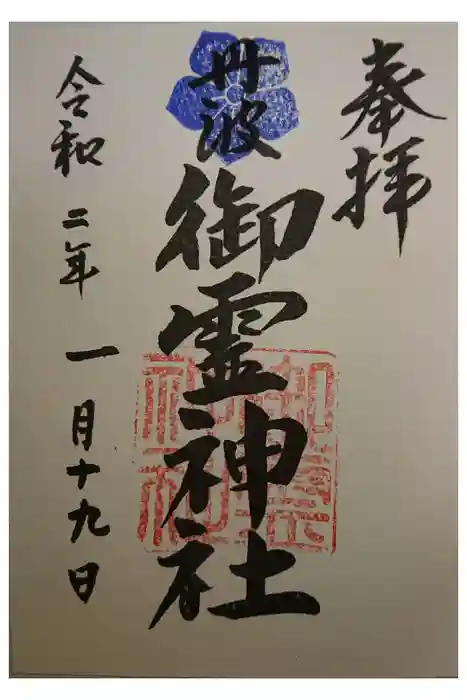 奉拝
丹波
御霊神社
令和二年一月十九日
御霊神社